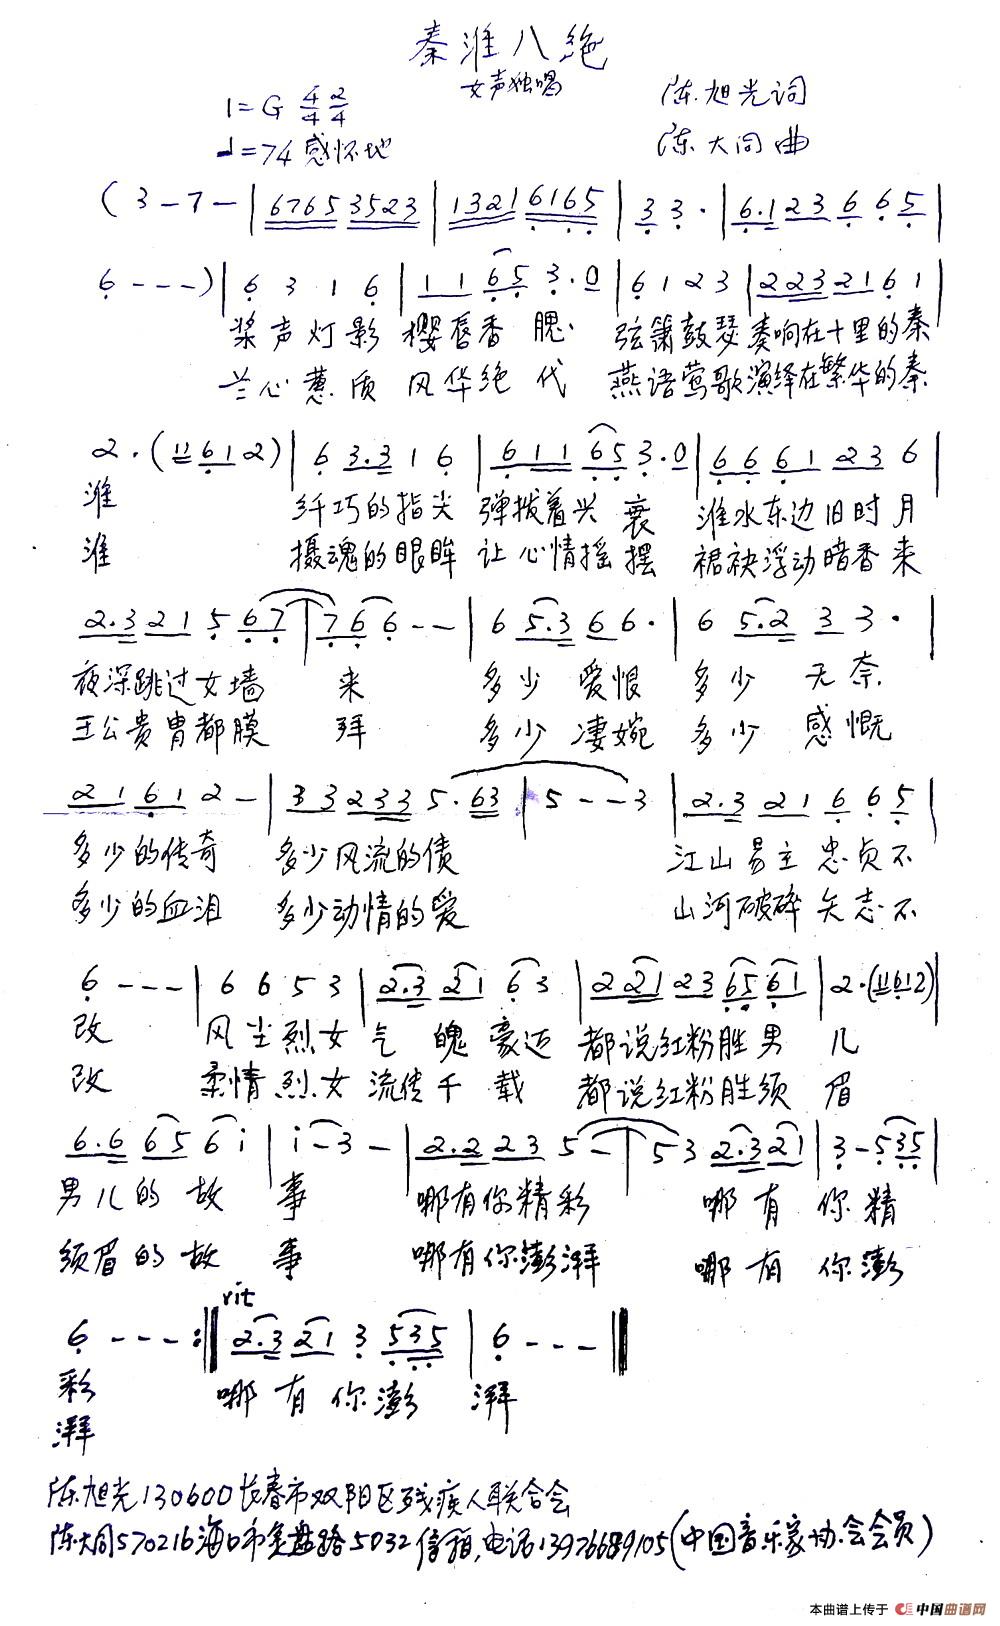 秦淮八绝
女声独唱
1=G 4/4 2/4
陈旭光词
♩=74 感怀地
陈大同曲
(3 - 7 - | 6765 3523 | 1321 6165 | 3 3 · | 6·1 23 6 6 5 |
6 - - -) | 6 3 1 6 | 1 1 65 3·0 | 6 1 2 3 | 2 23 21 6 1 |
桨声灯影 樱唇香腮 弦箫鼓瑟 奏响在十里的秦
兰心蕙质 风华绝代 燕语莺歌 演绎在繁华的秦
2 · (11 6 1 2) | 6 3·3 1 6 | 6 11 65 3·0 | 6 6 6 1 23 6 |
淮 纤巧的指尖 弹拨着兴衰 淮水东边旧时月
淮 摄魂的眼眸 让心情摇摆 裙袂浮动暗香来
2·3 21 5 67 | 7 6 6 - - | 6 5·3 6 6 · | 6 5·2 3 3 · |
夜深跳过女墙 来 多少爱恨 多少无奈
王公贵胄都膜 拜 多少凄婉 多少感慨
21 61 2 - | 33 233 5·63 | 5 - - 3 | 2·3 21 6 6 5 |
多少的传奇 多少风流的债 江山易主忠贞不
多少的血泪 多少动情的爱 山河破碎矢志不
6 - - - | 6 6 5 3 | 2·3 21 6 3 | 2 21 23 65 61 | 2·(11612) |
改 风尘烈女 气魄豪迈 都说红粉胜男 儿
改 柔情烈女 流传千载 都说红粉胜须 眉
6·6 65 6 i | i - 3 - | 2·2 23 5 - | 5 3 2·3 21 | 3 - 5 35 |
男儿的故 事 哪有你精彩 哪有 你精
须眉的故 事 哪有你澎湃 哪有 你澎
rit
6 - - - :‖ 2·3 21 3 535 | 6 - - - ‖
彩 哪有你澎 湃
湃
陈旭光130600长春市双阳区残疾人联合会
陈大同570216海口市金盘路5032信箱,电话13976689105(中国音乐家协会会员)
本曲谱上传于 中国曲谱网